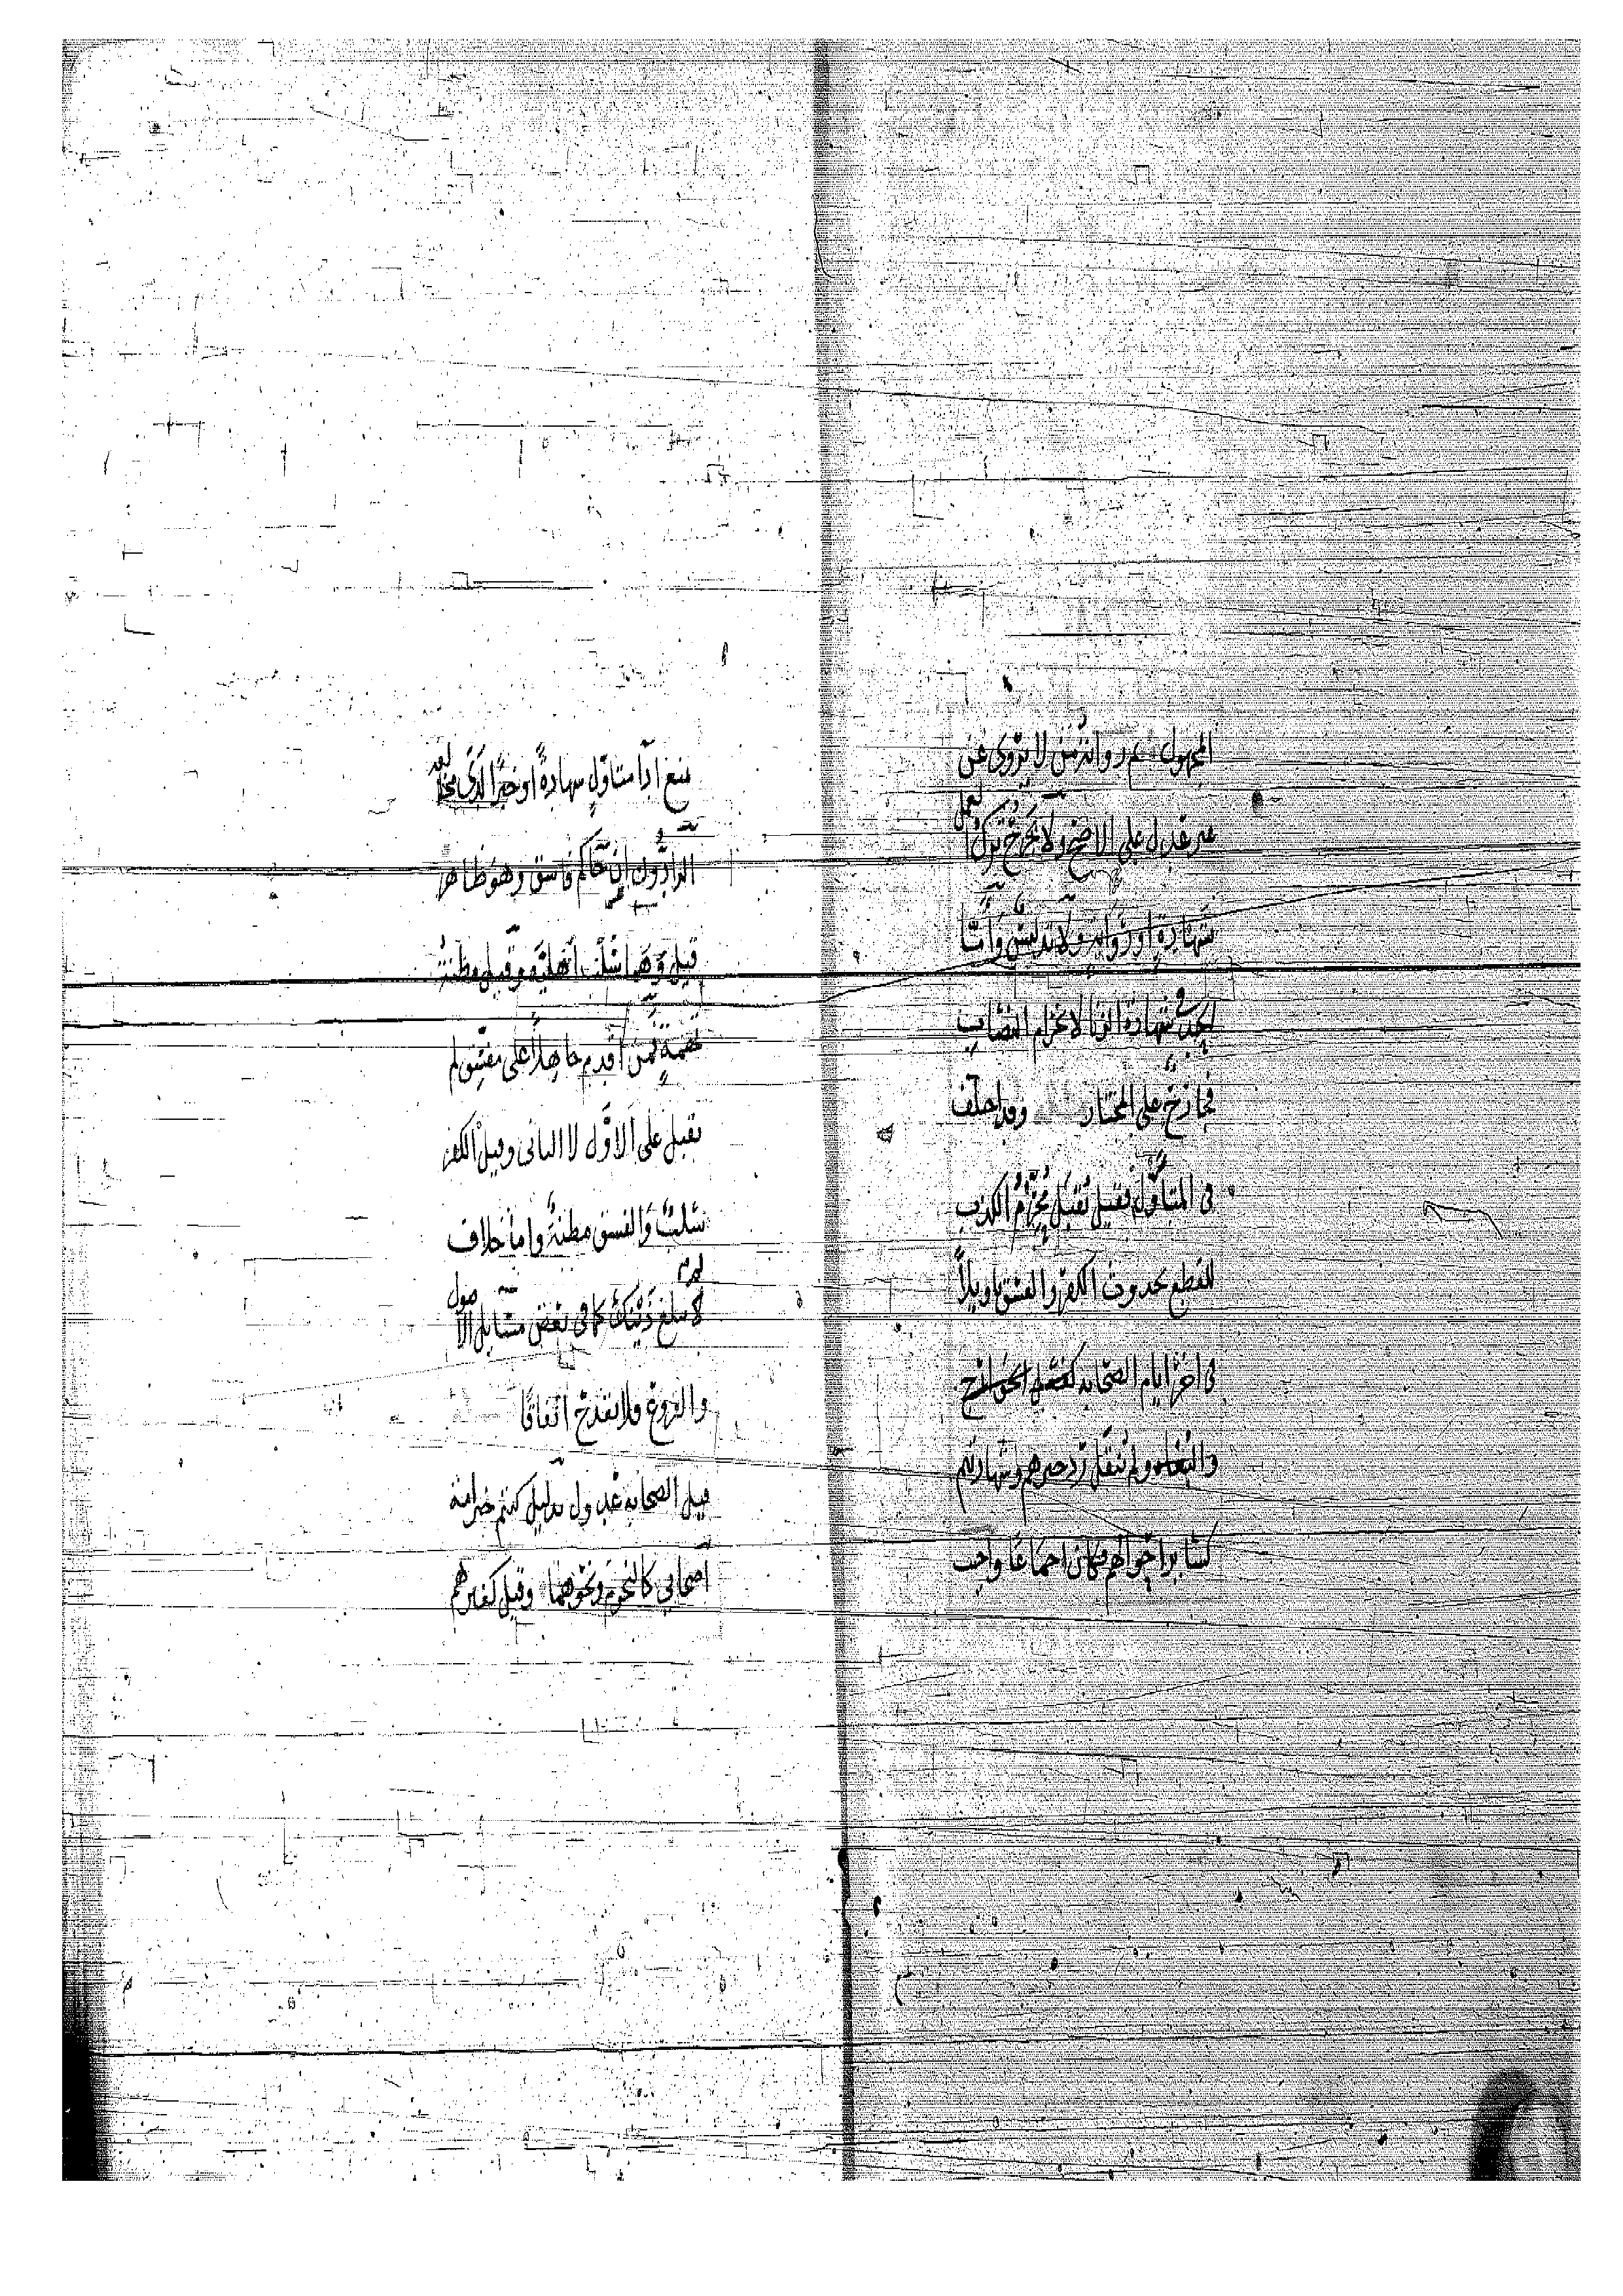 المجهول ثم رواية من لا يروي عن
غير عدل على الاصح ولا يجرح ترك العمل
شهادة او رواية ولا تدليس واما
الحد في شهادة الزنا لانخرام النصاب
فجارح على المختار وقد اختلف
في المتاول فقيل يقبل محرم الكذب
للقطع بحدوث الكفر والفسق تاويلا
في اخر ايام الصحابة كفعل الخوارج
والبغاة ولم ينقل رد خبرهم وشهادتهم
كسائر احوالهم فكان اجماعا واجب
منع اذا متاول شهادة او خبرا لدى
الرادون ان حاكم فاسق وهو ظاهرا
قيل وهما سلب اهلية وقيل مظنة
تهمة فمن اقدم جاهلا على مفسق لم
يقبل على الاول لا الثاني وقيل الكفر
سلب والفسق مظنة واما خلاف
لا يبلغ ذينك كما في بعض مسايل الاصول
والفروع فلا يقدح اتفاقا
قيل الصحابة عدول بدليل كنتم خير امة
اصحابي كالنجوم ونحوهما وقيل كغيرهم